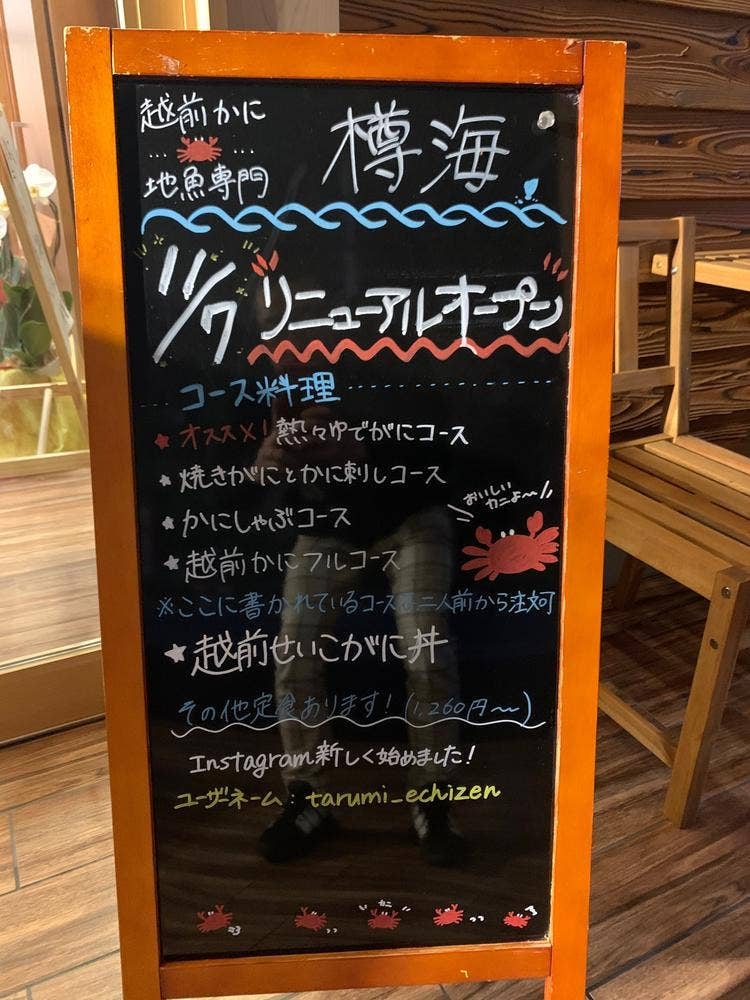 越前かに
地魚専門
樽海
11/7 リニューアルオープン
コース料理
★オススメ! 熱々ゆでがにコース
★焼きがにとかに刺しコース
★かにしゃぶコース
★越前かにフルコース
おいしい
カニよ〜
※ここに書かれているコースは二人前から注文可
★越前せいこがに丼
その他定食あります! (1,260円〜)
Instagram新しく始めました!
ユーザーネーム : tarumi_echizen